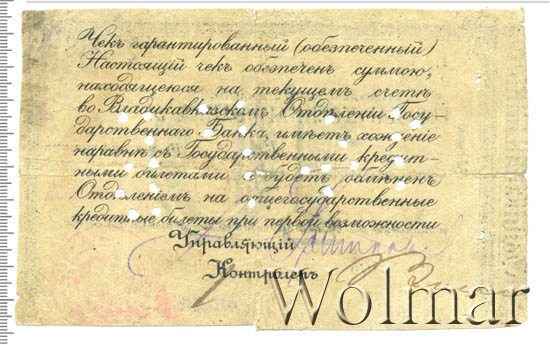 Чекъ гарантированный (обезпеченный)
Настоящій чек обезпечен суммою,
находящеюся на текущем счетѣ
во Владикавказском Отдѣленіи Госу-
дарственнаго Банка, имѣет хожденіе
наравнѣ съ Государственными кредит-
ными билетами и будет обмѣнен
Отдѣленіем на общегосударственные
кредитные билеты при первой возможности
Управляющій
Контролеръ
Wolmar